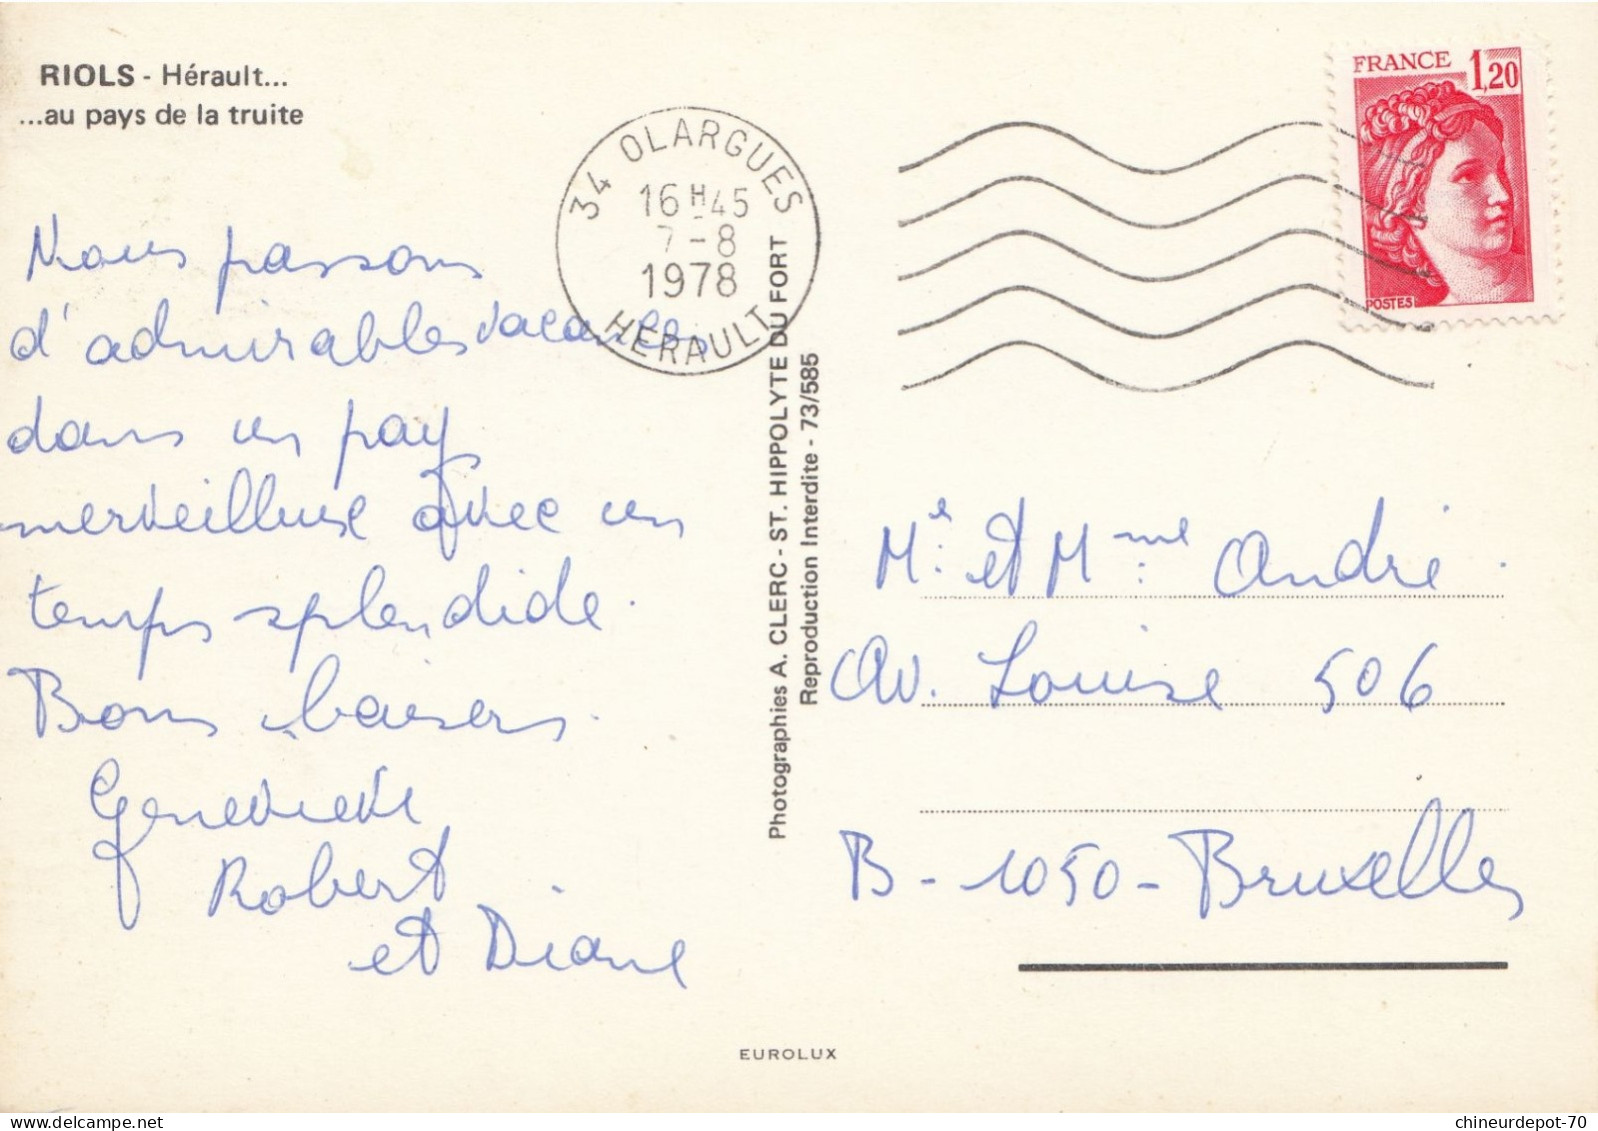 RIOLS - Hérault...
...au pays de la truite
34 OLARGUES
16 H 45
7-8
1978
HERAULT
FRANCE 1,20
POSTES
Nous passons
d'admirables vacances
dans un pays
merveilleuse avec un
temps splendide.
Bons baisers.
Genevieve
Robert
et Diane
Photographies A. CLERC - ST. HIPPOLYTE DU FORT
Reproduction Interdite - 73/585
Mr. et Mme André.
Av. Louise 506
B - 1050 - Bruxelles
EUROLUX
delcampe.net
chineurdepot-70